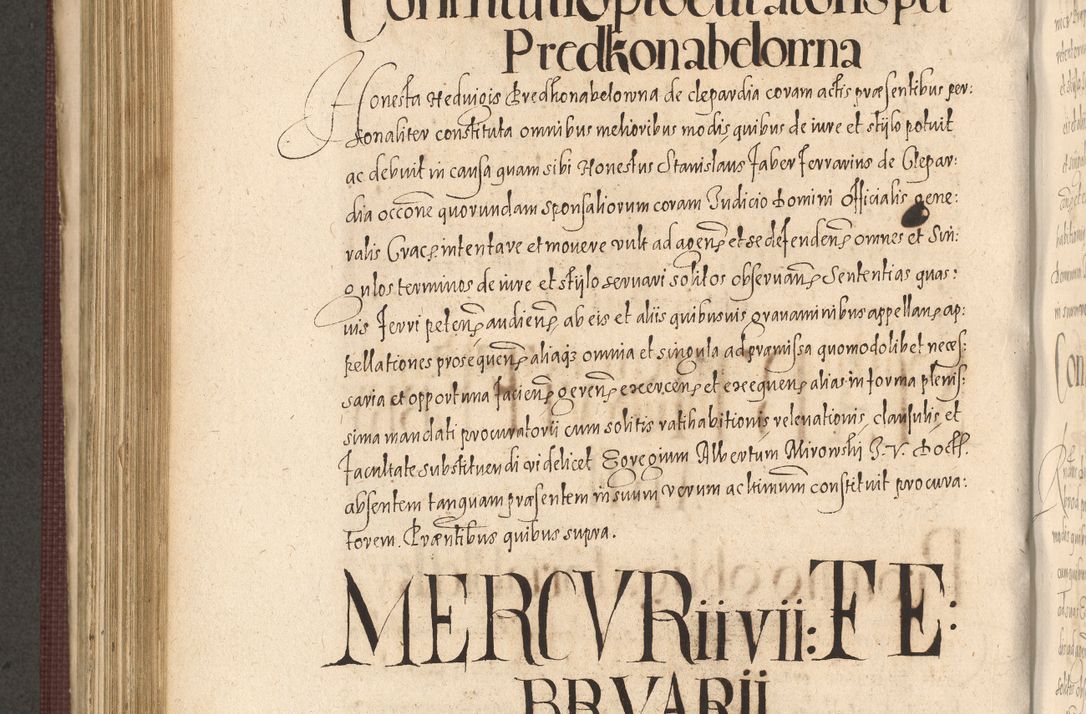 Constitutio procuratoris per
Predkonabelowna
Honesta Hedvigis Predkonabelowna de clepardia coram actis præsentibus per:
sonaliter constituta omnibus melioribus modis quibus de iure et stÿlo potuit
ac debuit in causa quam sibi Honestus Stanislaus faber ferrarius de Clepar:
dia occōne quorundam sponsaliorum coram Iudicio Domini Officialis gene:
ralis Crac: intentare et movere vult ad agen: et se defenden: omnes et Sin:
gulos terminos de iure et stÿlo servari solitos observan: Sententias quas:
vis ferri peten: audien: ab eis et aliis quibusvis gravaminibus appellan: ap:
pellationes prosequen: aliaqs omnia et singula ad præmissa quomodolibet necess:
saria et opportuna facien: geren: exercen: et exequen: alias in forma pleniss:
sima mandati procuratorii cum solitis ratihabitionis relevationis, clausulis, et
facultate substituendi videlicet Egregium Albertum Mirowski I. V. Doctt.
absentem tanquam præsentem in suum verum ac ltimum constituit procura:
torem. Præntibus quibus supra.
MERCVRii vii: FE:
BRVARII